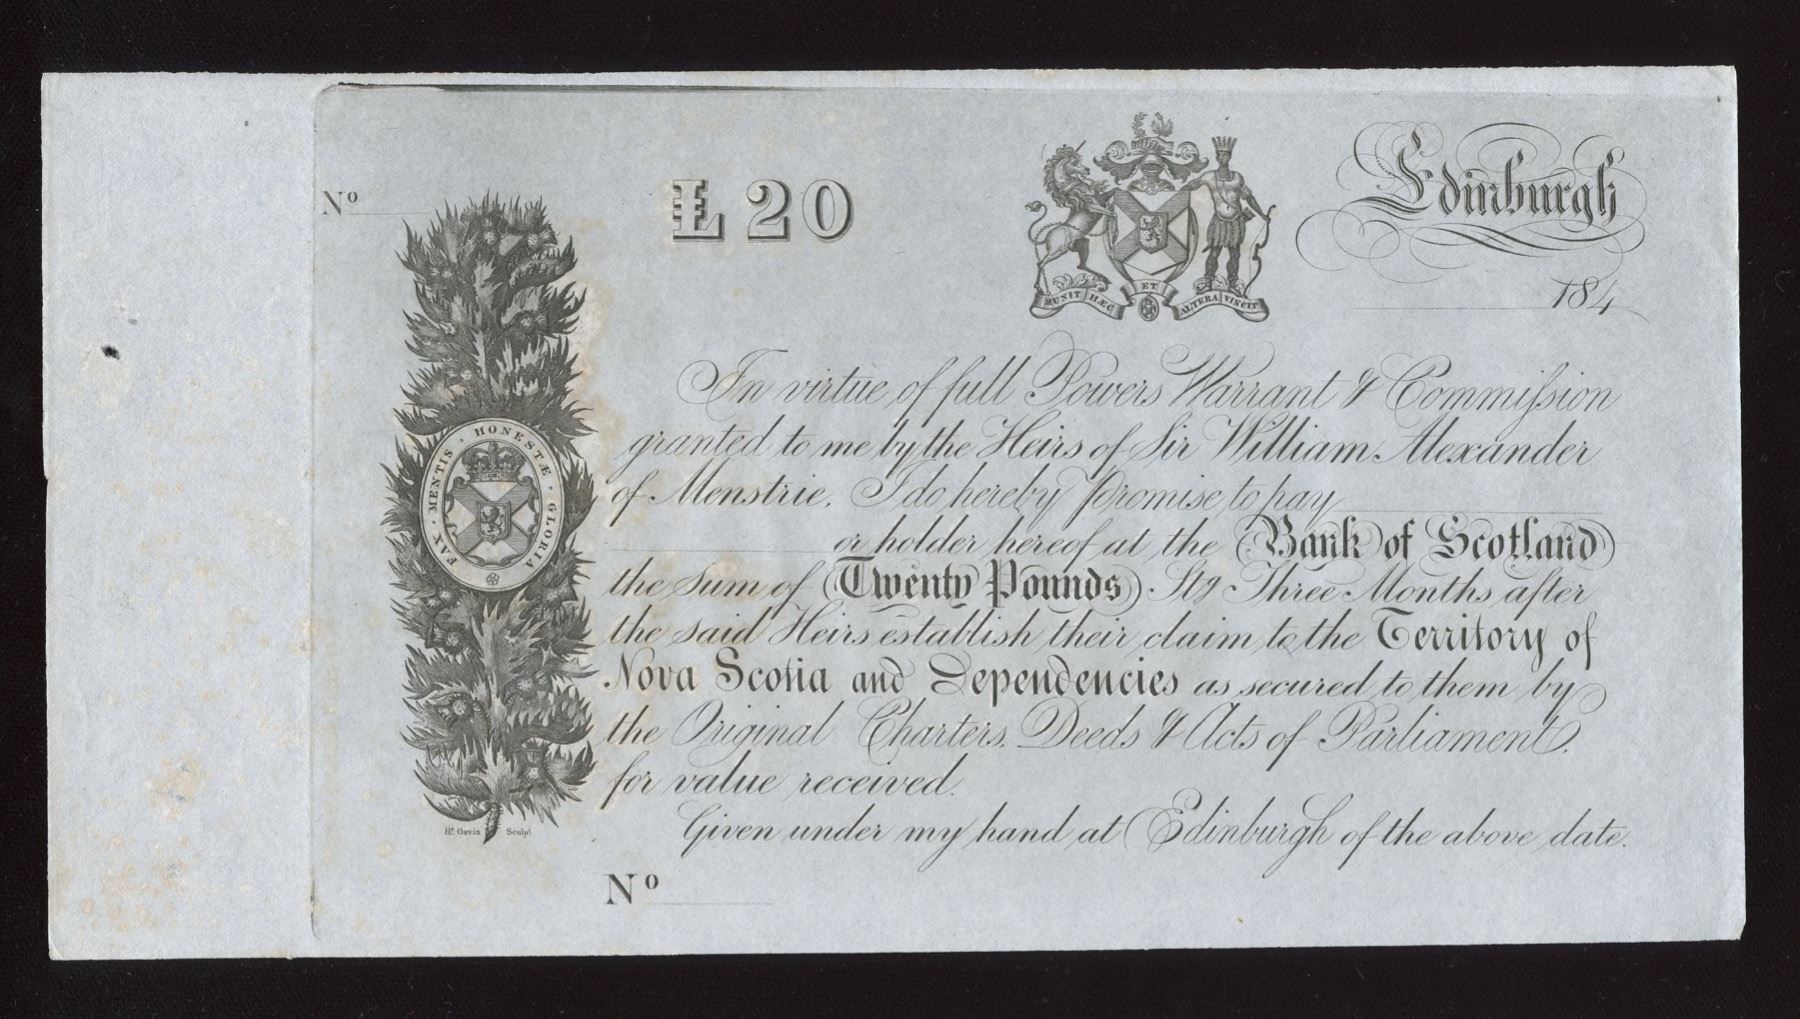 Nº
£20
Edinburgh
184
MUNIT HÆC ET ALTERA VINCIT
In virtue of full Powers Warrant & Commission
granted to me by the Heirs of Sir William Alexander
of Menstrie, I do hereby promise to pay
or holder hereof at the Bank of Scotland
the Sum of Twenty Pounds Stg Three Months after
the said Heirs establish their claim to the Territory of
Nova Scotia and Dependencies as secured to them by
the Original Charters, Deeds & Acts of Parliament,
for value received.
Given under my hand at Edinburgh of the above date.
FAX · MENTIS · HONESTÆ · GLORIA
Hy. Gavin Sculpt.
Nº